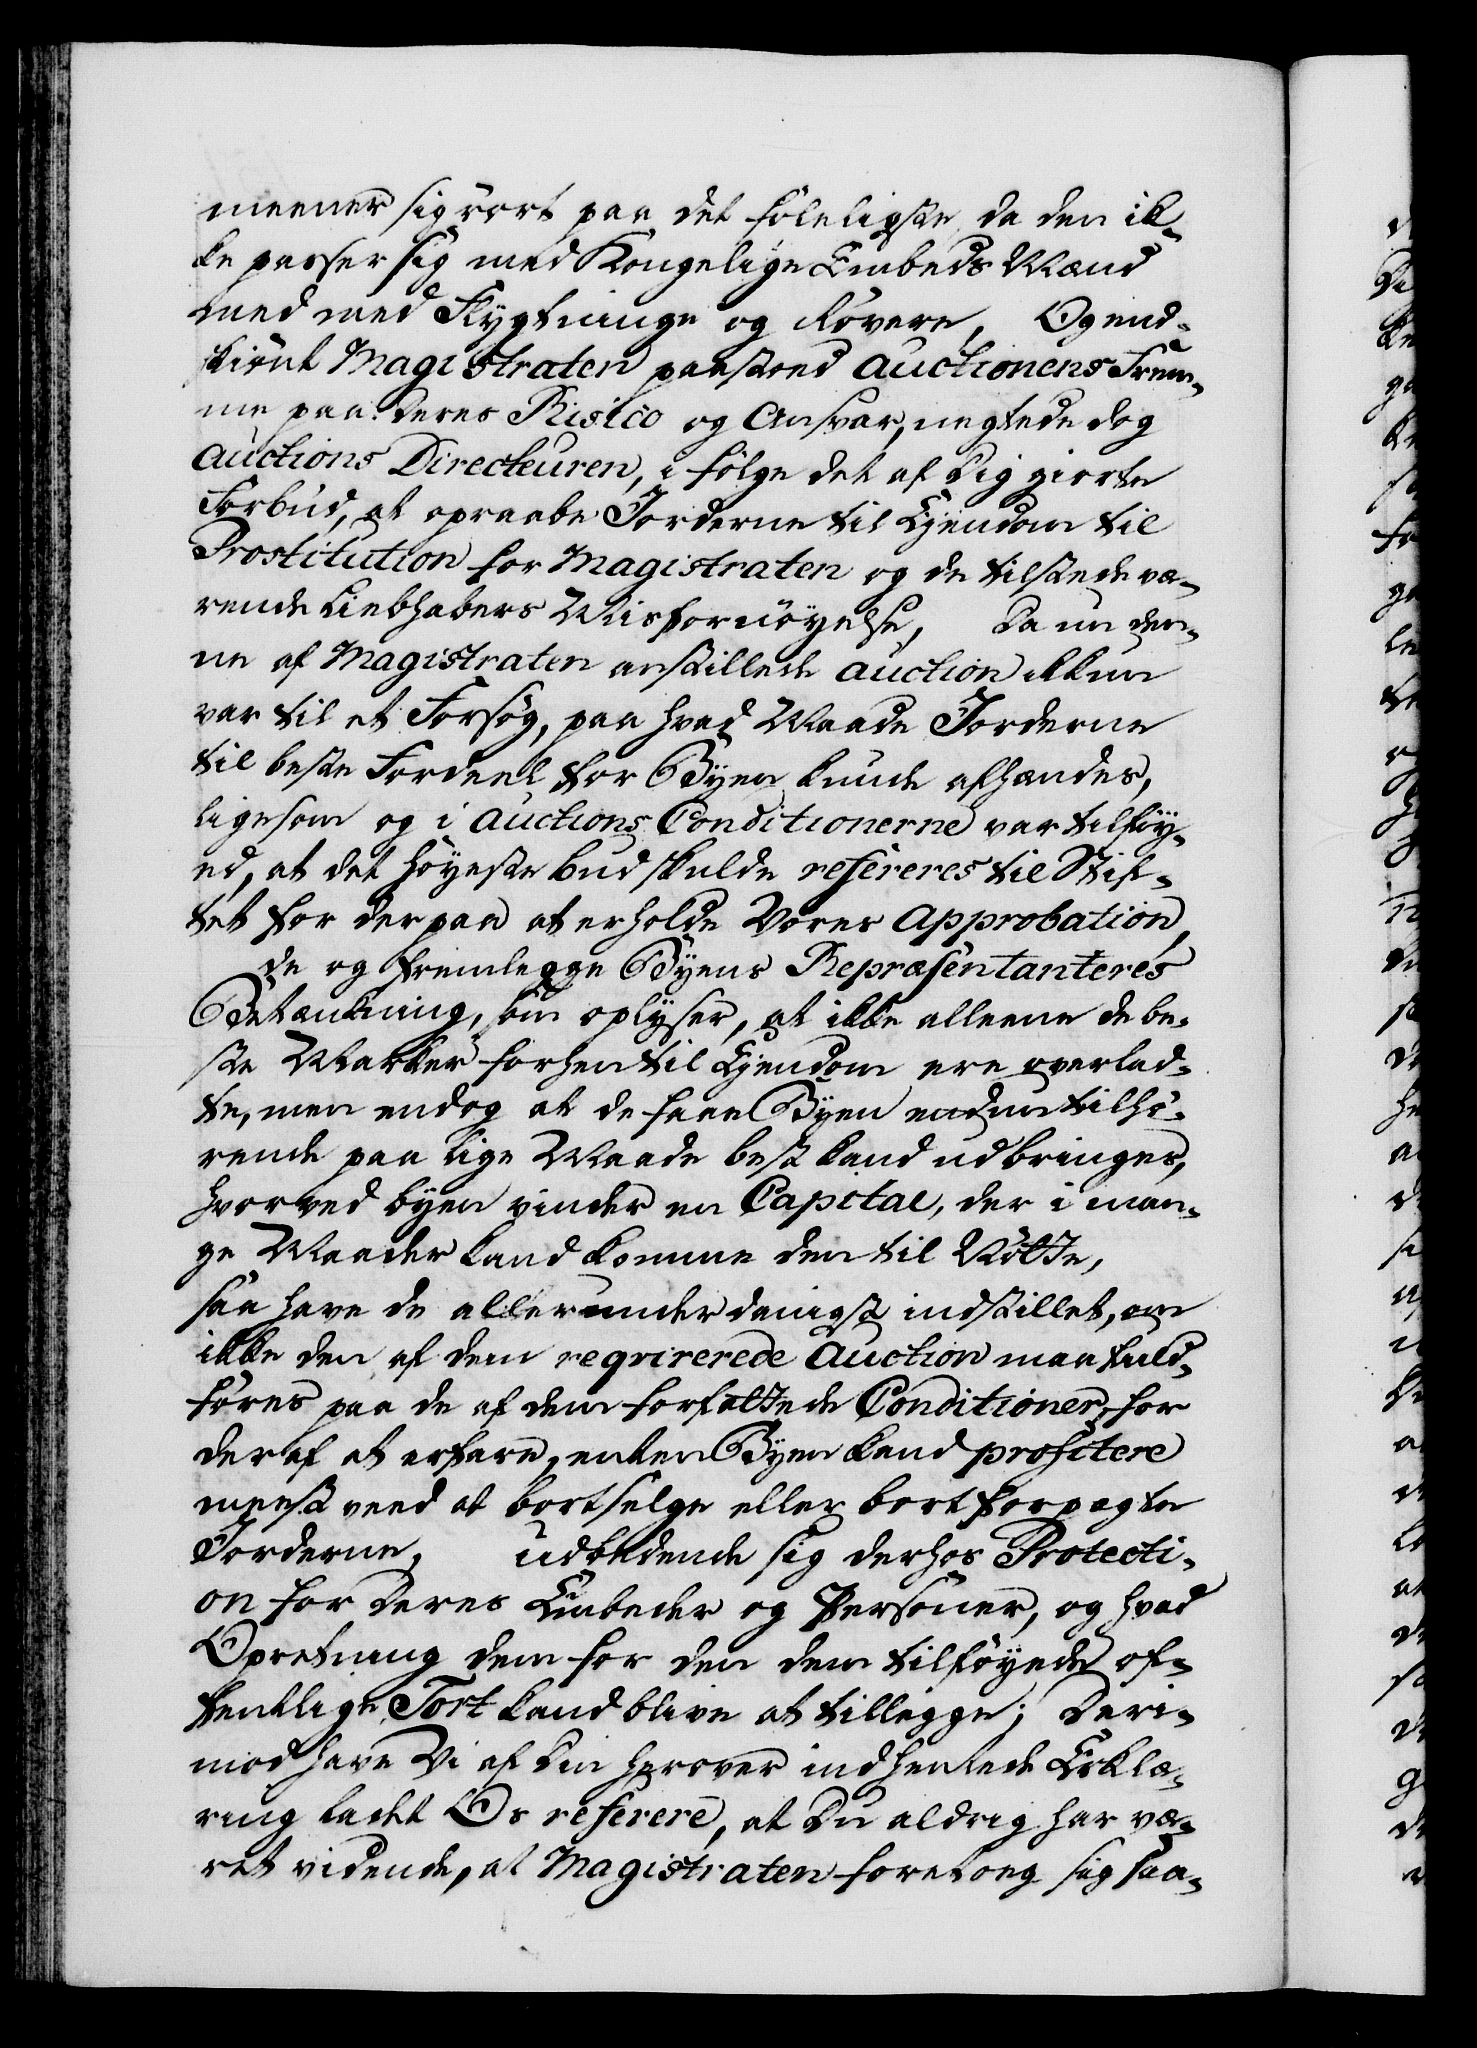 meener sig rört paa det föleligste, da den ik-
ke passer sig med Kongelige Embeds Mænd
med med Flygtninge og Rövere, Og end-
skiönt Magistraten paastoed Auctionens Frem-
me paa deres Risico og Ansvar, negtede dog
Auctions Directeuren, i fölge det af Dig giorte
Forbud, at opraabe Jorderne til Ejendom til
Prostitution for Magistraten og de tilstedevæ-
rende Liebhabers Misfornöyelse, Da nu den-
ne af Magistraten anstillede Auction ikkun
var til et Forsög, paa hvad Maade Jorderne
til beste Fordeel for Byen kunde afhændes,
ligesom og i Auctions Conditionerne var tilföy-
ed, at det höyeste bud skulde refereres til Stif-
tet for derpaa at erholde Vores Approbation,
de og fremlegge Byens Repræsentanteres
Betænkning, som oplyser, at ikke alleene de be-
ste Marker forhen til Ejendom ere overlad-
te, men endog at de faae Byen endnu tilhö-
rende paa lige Maade best kand udbringes,
hvorved byen vinder en Capital, der i man-
ge Maader kand komme den til Nötte,
saa have de allerunderdanigst indstillet, om
ikke den af dem reqvirerede Auction maa fuld-
föres paa de af dem forfattede Conditioner, for
deraf at erfare, enten Byen kand profitere
meest veed at bortselge eller bortforpagte
Jorderne, udbedende sig derhos Protecti-
on for deres Embeder og Personer, og hvad
Opretning dem for den dem tilföyede of-
fentlige Tort kand blive at tillegge; Deri-
mod have Vi af Din herover indhentede Erklæ-
ring ladet Os referere, at Du aldrig har væ-
ret vidende, at Magistraten foretoeg sig saa-